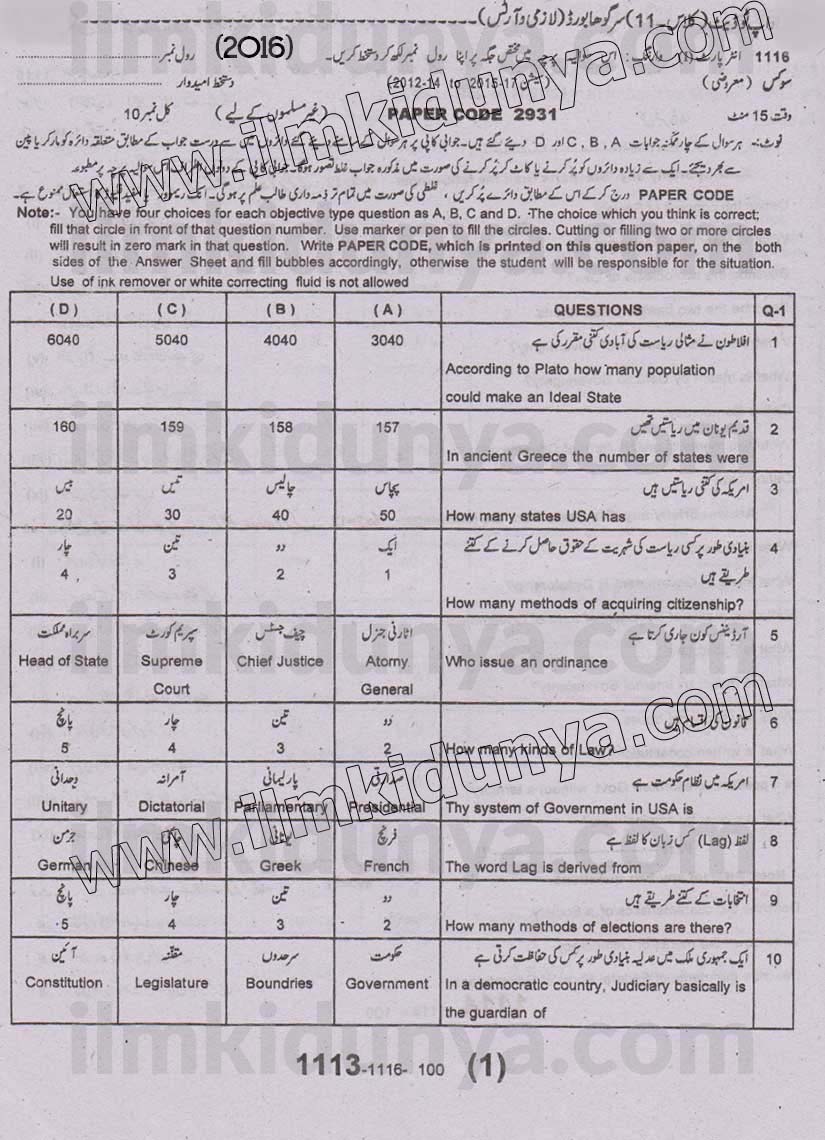 اپ ٹو ڈیٹ (کلاس-11) سرگودھا بورڈ (لازمی و آرٹس)
1116 انٹر پارٹ (I) وارننگ: اس سوالیہ پرچے میں مختص جگہ پر اپنا رول نمبر لکھ کر دستخط کریں۔ (2016) رول نمبر
سوکس (معروضی) (سیشن 2015-17 to 2012-14) دستخط امیدوار
وقت 15 منٹ PAPER CODE 2931 (غیر مسلموں کے لیے) کل نمبر 10
نوٹ:- ہر سوال کے چار ممکنہ جوابات A ,B ,C اور D دیئے گئے ہیں۔ جوابی کاپی پر ہر سوال کے سامنے دیئے گئے دائروں میں سے درست جواب کے مطابق متعلقہ دائرہ کو مارکر یا پین
سے بھر دیجئے۔ ایک سے زیادہ دائروں کو پُر کرنے یا کاٹ کر پُر کرنے کی صورت میں مذکورہ جواب غلط تصور ہوگا۔ جوابی کاپی کے دونوں اطراف اس سوالیہ پرچہ پر مطبوعہ
PAPER CODE درج کر کے اس کے مطابق دائرے پُر کریں، غلطی کی صورت میں تمام تر ذمہ داری طالب علم پر ہوگی۔ انک ریموور یا سفید فلوئڈ کا استعمال ممنوع ہے۔
Note:- You have four choices for each objective type question as A, B, C and D. The choice which you think is correct;
fill that circle in front of that question number. Use marker or pen to fill the circles. Cutting or filling two or more circles
will result in zero mark in that question. Write PAPER CODE, which is printed on this question paper, on the both
sides of the Answer Sheet and fill bubbles accordingly, otherwise the student will be responsible for the situation.
Use of ink remover or white correcting fluid is not allowed
( D ) ( C ) ( B ) ( A ) QUESTIONS Q-1
6040 5040 4040 3040 افلاطون نے مثالی ریاست کی آبادی کتنی مقرر کی ہے 1
According to Plato how many population
could make an Ideal State
160 159 158 157 قدیم یونان میں ریاستیں تھیں 2
In ancient Greece the number of states were
بیس تیس چالیس پچاس امریکہ کی کتنی ریاستیں ہیں 3
20 30 40 50 How many states USA has
چار تین دو ایک بنیادی طور پر کسی ریاست کی شہریت کے حقوق حاصل کرنے کے کتنے 4
طریقے ہیں
4 3 2 1 How many methods of acquiring citizenship?
سربراہ مملکت سپریم کورٹ چیف جسٹس اٹارنی جنرل آرڈیننس کون جاری کرتا ہے 5
Head of State Supreme Chief Justice Atorny Who issue an ordinance
Court General
پانچ چار تین دو قانون کی اقسام ہیں 6
5 4 3 2 How many kinds of Law?
وحدانی آمرانہ پارلیمانی صدارتی امریکہ میں نظام حکومت ہے 7
Unitary Dictatorial Parliamentary Presidential Thy system of Government in USA is
جرمن فرنچ لفظ (Lag) کس زبان کا لفظ ہے 8
German Chinese Greek French The word Lag is derived from
پانچ چار تین دو انتخابات کے کتنے طریقے ہیں 9
5 4 3 2 How many methods of elections are there?
آئین مقننہ سرحدوں حکومت ایک جمہوری ملک میں عدلیہ بنیادی طور پر کس کی حفاظت کرتی ہے 10
Constitution Legislature Boundries Government In a democratic country, Judiciary basically is
the guardian of
1113-1116- 100 (1)
www.ilmkidunya.com
www.ilmkidunya.com
ilmkidunya.com
ilmkidunya.com
ilmkidunya.com
ilmkidunya.com